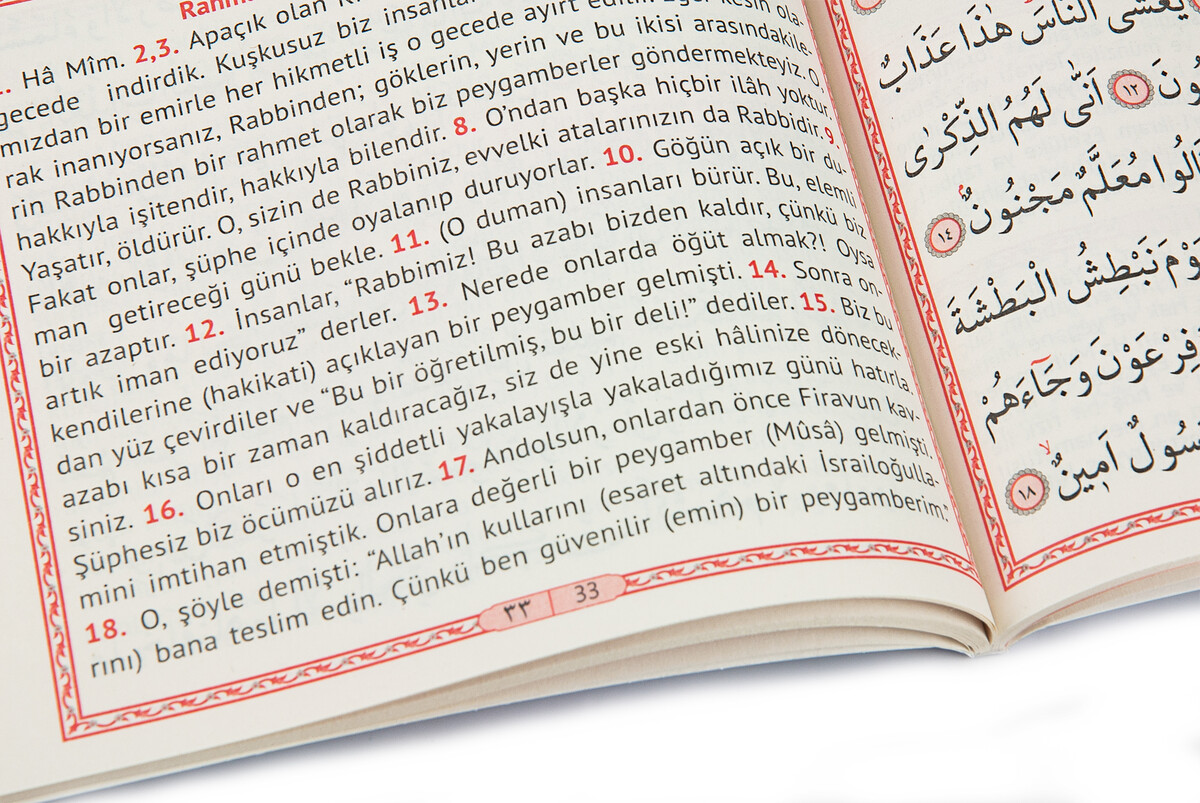 Rahm
Hâ Mîm. 2,3. Apaçık olan
gecede indirdik. Kuşkusuz biz insanla
mızdan bir emirle her hikmetli iş o gecede ayırt edilir. Eğer kesin ola-
rak inanıyorsanız, Rabbinden; göklerin, yerin ve bu ikisi arasındakile-
rin Rabbinden bir rahmet olarak biz peygamberler göndermekteyiz. O,
hakkıyla işitendir, hakkıyla bilendir. 8. O’ndan başka hiçbir ilâh yoktur.
Yaşatır, öldürür. O, sizin de Rabbiniz, evvelki atalarınızın da Rabbidir. 9
Fakat onlar, şüphe içinde oyalanıp duruyorlar. 10. Göğün açık bir du-
man getireceği günü bekle. 11. (O duman) insanları bürür. Bu, elemli
bir azaptır. 12. İnsanlar, “Rabbimiz! Bu azabı bizden kaldır, çünkü biz
artık iman ediyoruz” derler. 13. Nerede onlarda öğüt almak?! Oysa
kendilerine (hakikati) açıklayan bir peygamber gelmişti. 14. Sonra on-
dan yüz çevirdiler ve “Bu bir öğretilmiş, bu bir deli!” dediler. 15. Biz bu
azabı kısa bir zaman kaldıracağız, siz de yine eski hâlinize dönecek-
siniz. 16. Onları o en şiddetli yakalayışla yakaladığımız günü hatırla.
Şüphesiz biz öcümüzü alırız. 17. Andolsun, onlardan önce Firavun kav-
mini imtihan etmiştik. Onlara değerli bir peygamber (Mûsâ) gelmişti.
18. O, şöyle demişti: “Allah’ın kullarını (esaret altındaki İsrailoğulla-
rını) bana teslim edin. Çünkü ben güvenilir (emin) bir peygamberim.”
٣٣ 33
يَغْشَى النَّاسَ هٰذَا عَذَابٌ
ونَ ١٢ اَنّٰى لَهُمُ الذِّكْرٰى
الُوا مُعَلَّمٌ مَجْنُونٌ ١٤
وْمَ نَبْطِشُ الْبَطْشَةَ
فِرْعَوْنَ وَجَٓاءَهُمْ
سُولٌ اَمٖينٌ ١٨